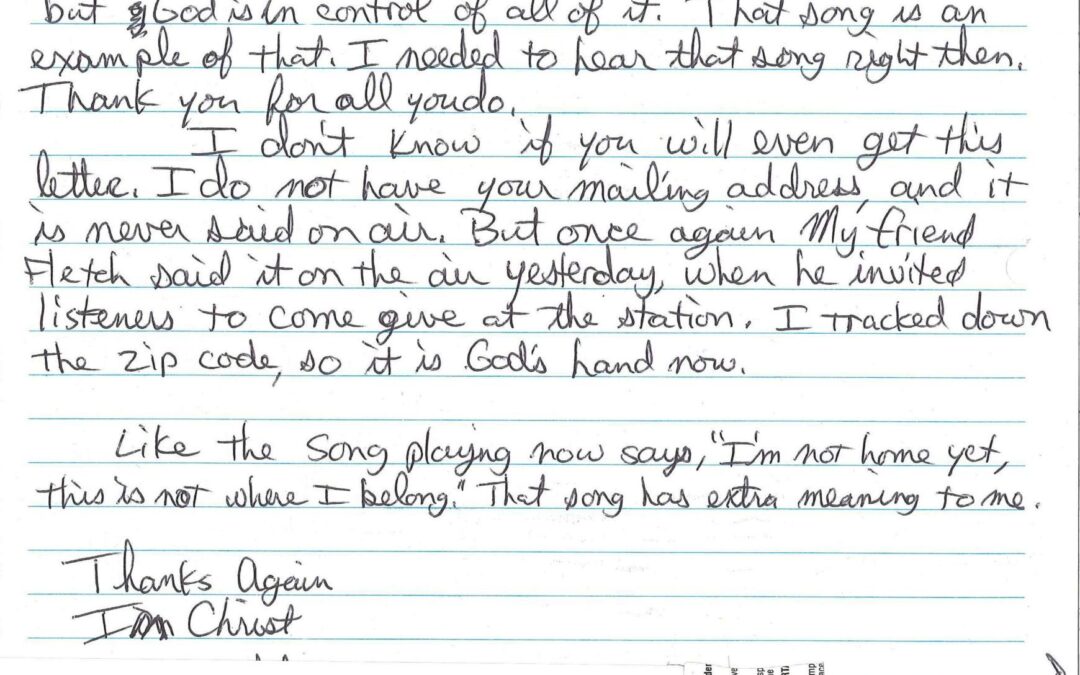 but God is in control of all of it. That song is an
example of that. I needed to hear that song right then.
Thank you for all youdo.
I don't know if you will even get this
letter. I do not have your mailing address, and it
is never said on air. But once again My friend
Fletch said it on the air yesterday, when he invited
listeners to come give at the station. I tracked down
the zip code, so it is God's hand now.
Like the song playing now says, "I'm not home yet,
this is not where I belong." That song has extra meaning to me.
Thanks Again
In Christ